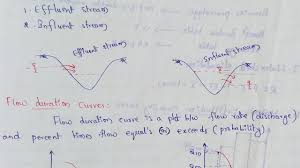 1. Effluent stream
2. Influent stream
Effluent stream
Influent stream
Flow duration Curve:-
Flow duration curve is a plot b/w flow rate (discharge)
and percent times flow equal's (or) exceeds (probability)